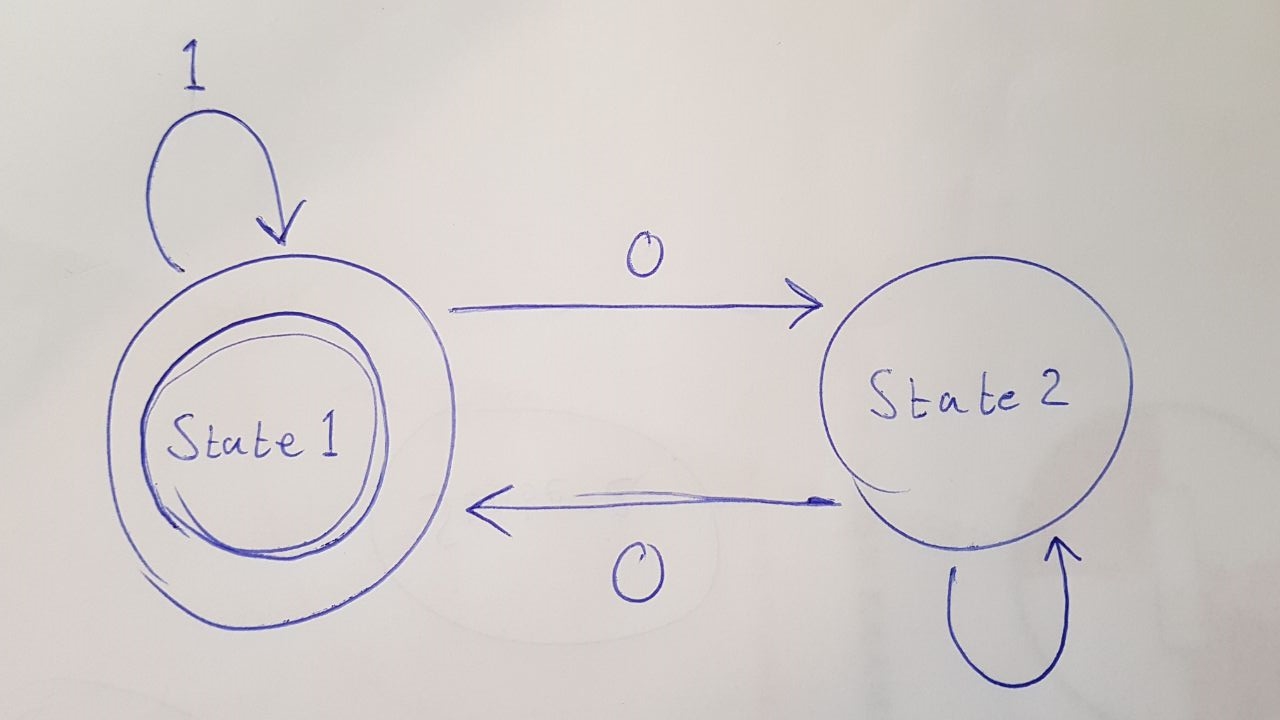 1
0
State 1
State 2
0